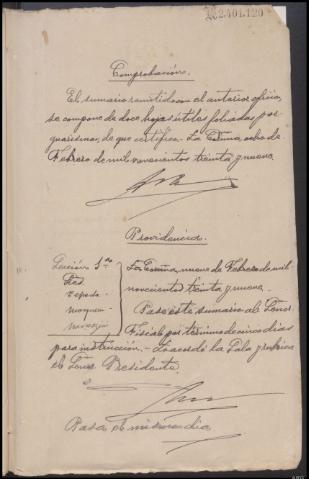 2.401.120
Comprobación.
El sumario remitido con el anterior oficio,
se compone de doce hojas útiles foliadas por
guarismos, de que certifico. La Coruña, ocho de
Febrero de mil novecientos treinta y nueve
Providencia.
Sección 1ª
La Coruña, nueve de Febrero de mil
novecientos treinta y nueve.
Pase este sumario al Señor
Fiscal por término de cinco dias
para instrucción. - Lo acordó la Sala y rubrica
el Señor Presidente.
Pasa el mismo dia